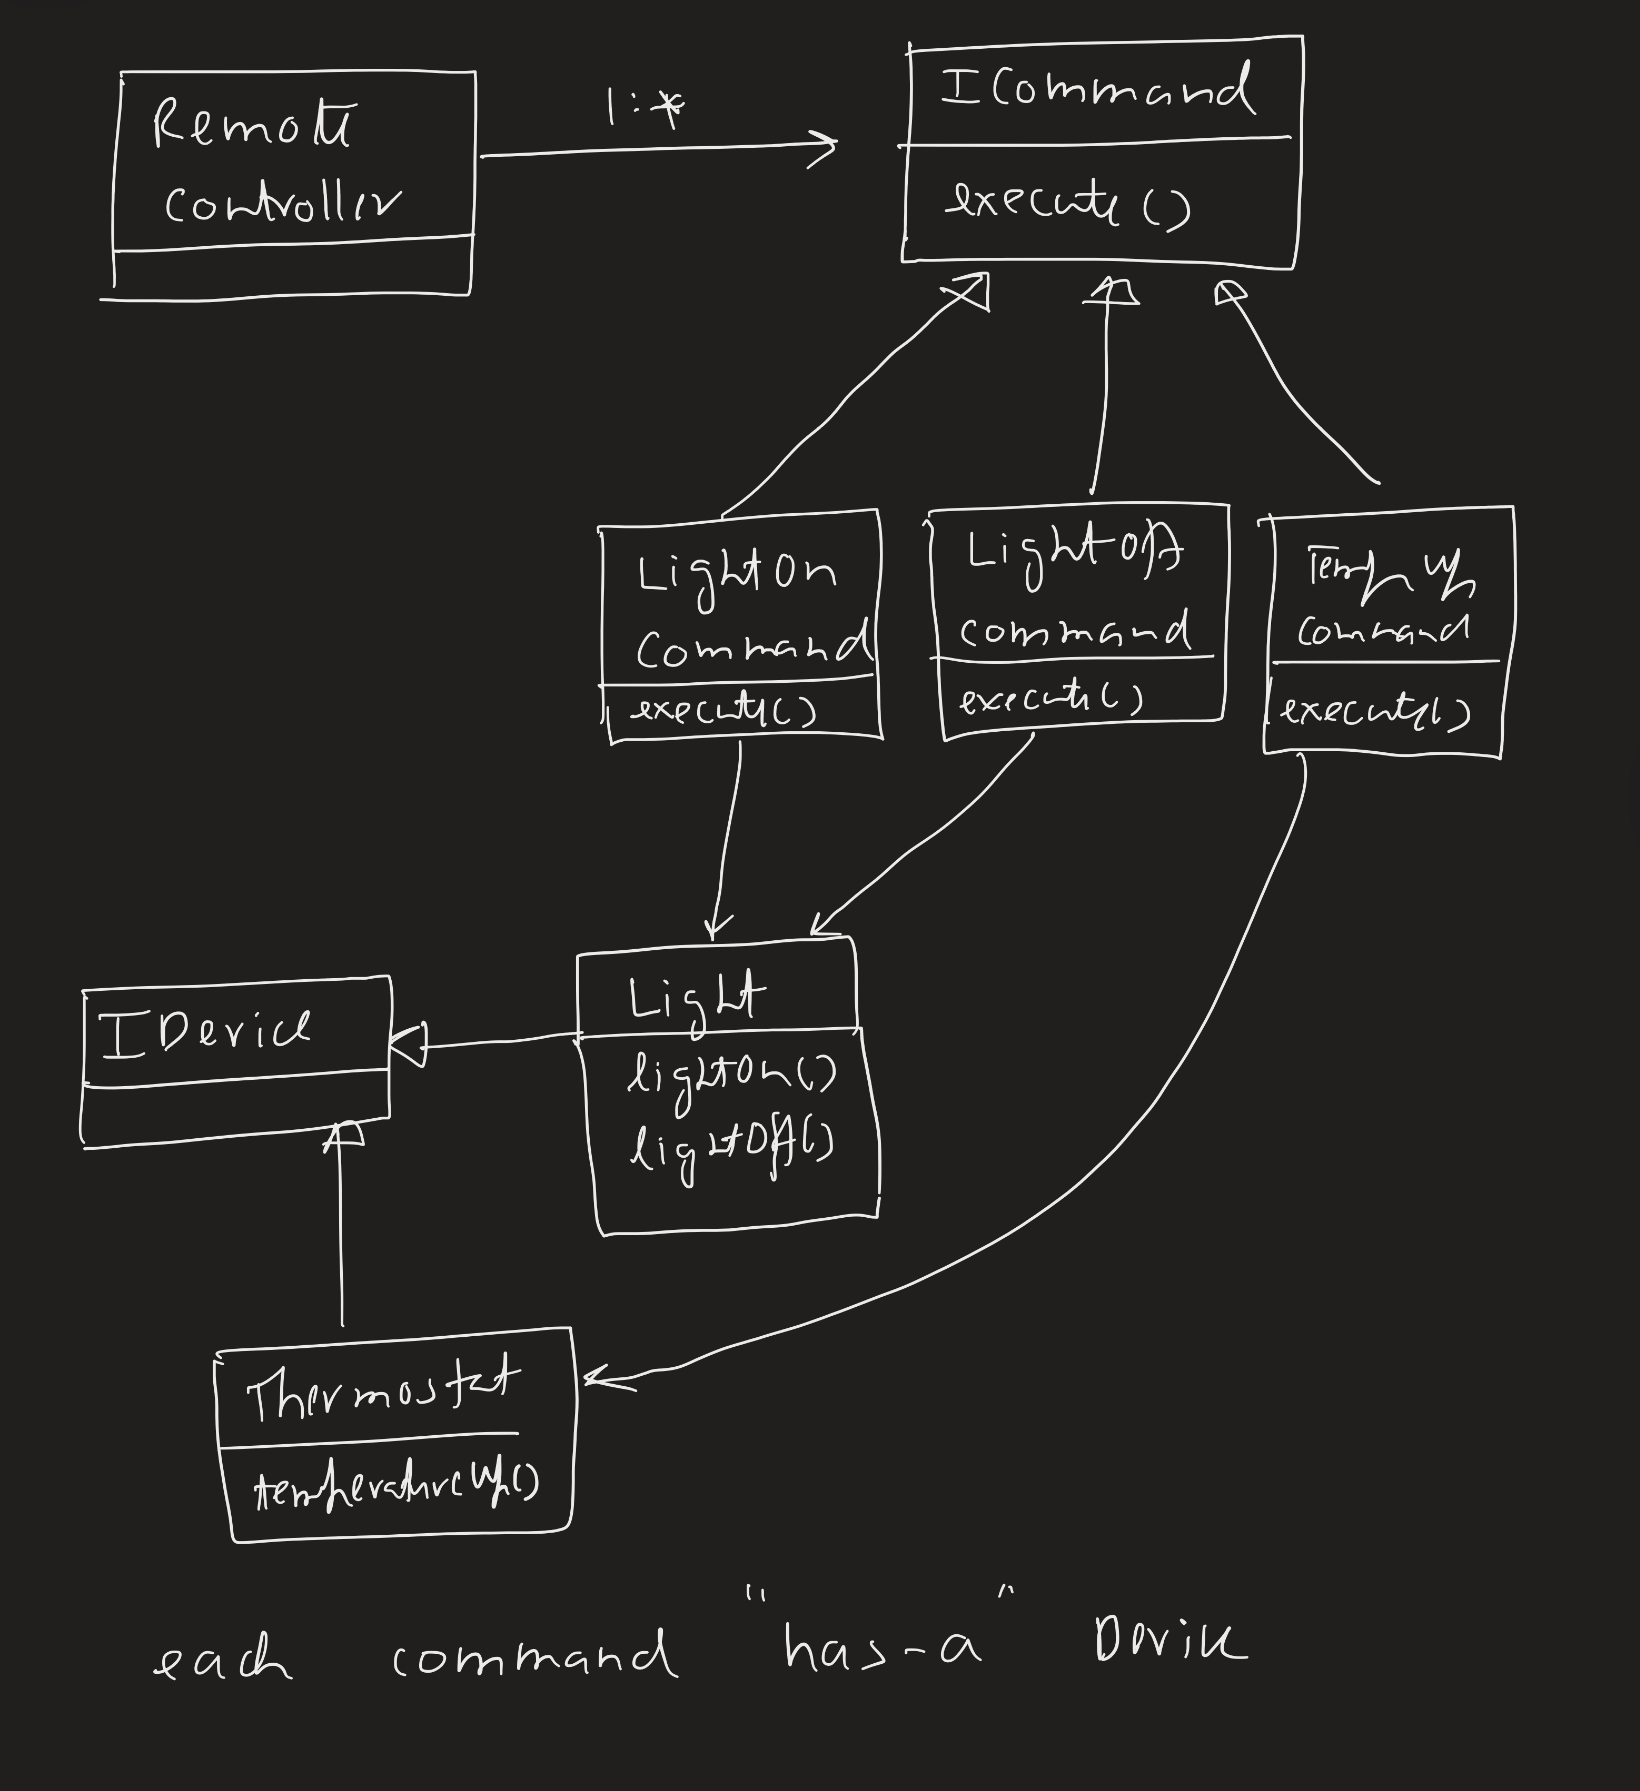 Remote
Controller
1:*
ICommand
execute()
LightOn
Command
execute()
LightOff
command
execute()
Temp Up
Command
execute()
IDevice
Light
lightOn()
lightOff()
Thermostat
temperatureUp()
each command "has-a" Device